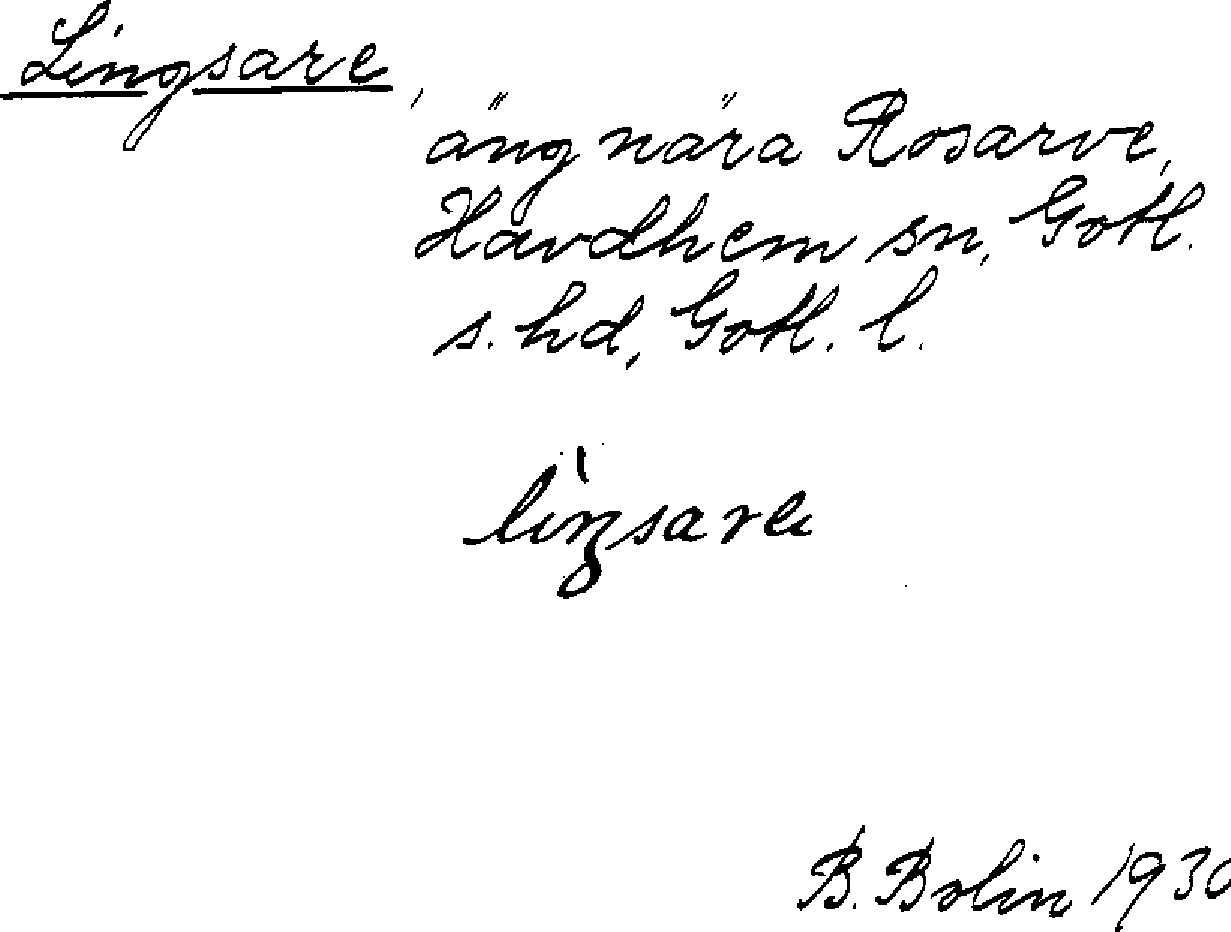 Lingsare,
äng nära Rosarve,
Havdhem sn, Gotl.
s. hd, Gotl. l.
lìŋsare
B. Bolin 1930